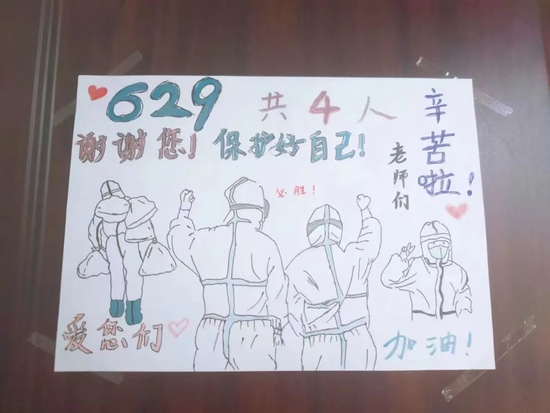 629 共4人
谢谢您! 保护好自己!
必胜!
老师们
辛苦啦!
爱您们
加油!